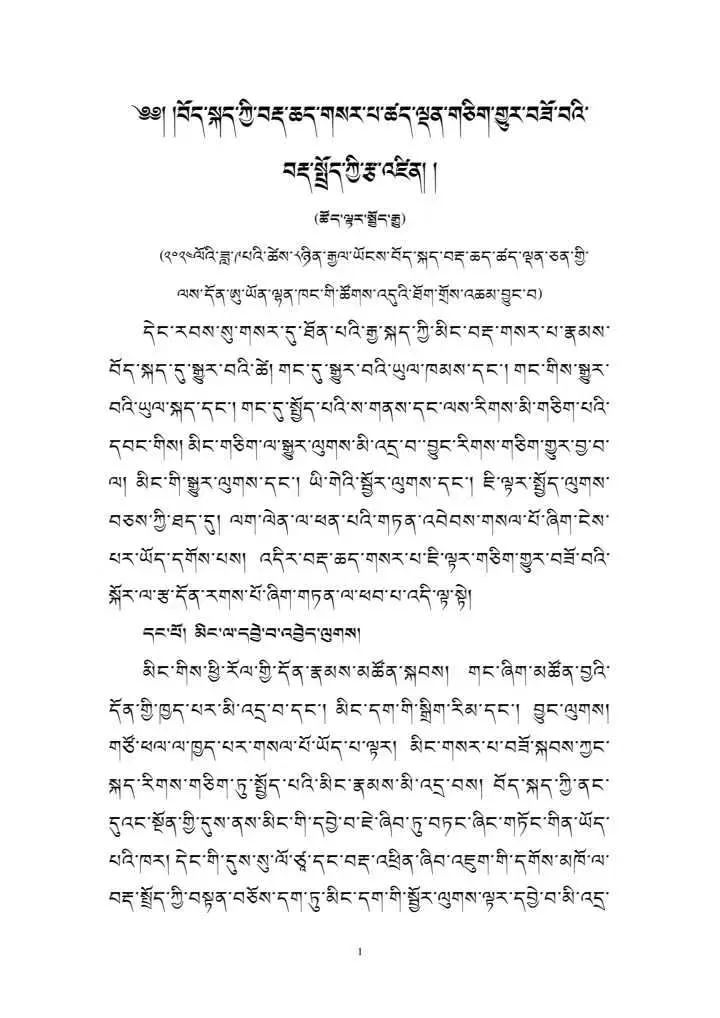 ༄༅། །བོད་སྐད་ཀྱི་བརྡ་ཆད་གསར་པ་ཚད་ལྡན་གཅིག་གྱུར་བཟོ་བའི་
བརྡ་སྤྲོད་ཀྱི་རྩ་འཛིན། །
(ཚོད་ལྟར་སྤྱོད་རྒྱུ)
(༢༠༢༤ལོའི་ཟླ་༩པའི་ཚེས་༨ཉིན་རྒྱལ་ཡོངས་བོད་སྐད་བརྡ་ཆད་ཚད་ལྡན་ཅན་གྱི་
ལས་དོན་ཨུ་ཡོན་ལྷན་ཁང་གི་ཚོགས་འདུའི་ཐོག་གྲོས་འཆམ་བྱུང་བ)
དེང་རབས་སུ་གསར་དུ་ཐོན་པའི་རྒྱ་སྐད་ཀྱི་མིང་བརྡ་གསར་པ་རྣམས་
བོད་སྐད་དུ་སྒྱུར་བའི་ཚེ། གང་དུ་སྒྱུར་བའི་ཡུལ་ཁམས་དང་། གང་གིས་སྒྱུར་
བའི་ཡུལ་སྐད་དང་། གང་དུ་སྤྱོད་པའི་ས་གནས་དང་ལས་རིགས་མི་གཅིག་པའི་
དབང་གིས། མིང་གཅིག་ལ་སྒྱུར་ལུགས་མི་འདྲ་བ་བྱུང་རིགས་གཅིག་གྱུར་བྱ་བ་
ལ། མིང་གི་སྒྱུར་ལུགས་དང་། ཡི་གེའི་སྦྱོར་ལུགས་དང་། ཇི་ལྟར་སྤྱོད་ལུགས་
བཅས་ཀྱི་ཐད་དུ། ལག་ལེན་ལ་ཕན་པའི་གཏན་འབེབས་གསལ་པོ་ཞིག་ངེས་
པར་ཡོད་དགོས་པས། འདིར་བརྡ་ཆད་གསར་པ་ཇི་ལྟར་གཅིག་གྱུར་བཟོ་བའི་
སྐོར་ལ་རྩ་དོན་རགས་པོ་ཞིག་གཏན་ལ་ཕབ་པ་འདི་ལྟ་སྟེ།
དང་པོ། མིང་ལ་དབྱེ་བ་འབྱེད་ལུགས།
མིང་གིས་ཕྱི་རོལ་གྱི་དོན་རྣམས་མཚོན་སྐབས། གང་ཞིག་མཚོན་བྱའི་
དོན་གྱི་ཁྱད་པར་མི་འདྲ་བ་དང་། མིང་དག་གི་སྒྲིག་རིམ་དང་། བྱུང་ལུགས།
གཙོ་ཕལ་ལ་ཁྱད་པར་གསལ་པོ་ཡོད་པ་ལྟར། མིང་གསར་པ་བཟོ་སྐབས་ཀྱང་
སྐད་རིགས་གཅིག་ཏུ་སྤྱོད་པའི་མིང་རྣམས་མི་འདྲ་བས། བོད་སྐད་ཀྱི་ནང་
དུའང་སྔོན་གྱི་དུས་ནས་མིང་གི་དབྱེ་བ་ཇེ་ཞིབ་ཏུ་བཏང་ཞིང་གཏོང་གིན་ཡོད་
པའི་ཁར། དེང་གི་དུས་སུ་ལོ་ཙཱ་དང་བརྡ་འཕྲིན་ཞིབ་འཇུག་གི་དགོས་མཁོ་ལ་
བརྡ་སྤྲོད་ཀྱི་བསྟན་བཅོས་དག་ཏུ་མིང་དག་གི་སྦྱོར་ལུགས་ལྟར་དབྱེ་བ་མི་འདྲ་
1